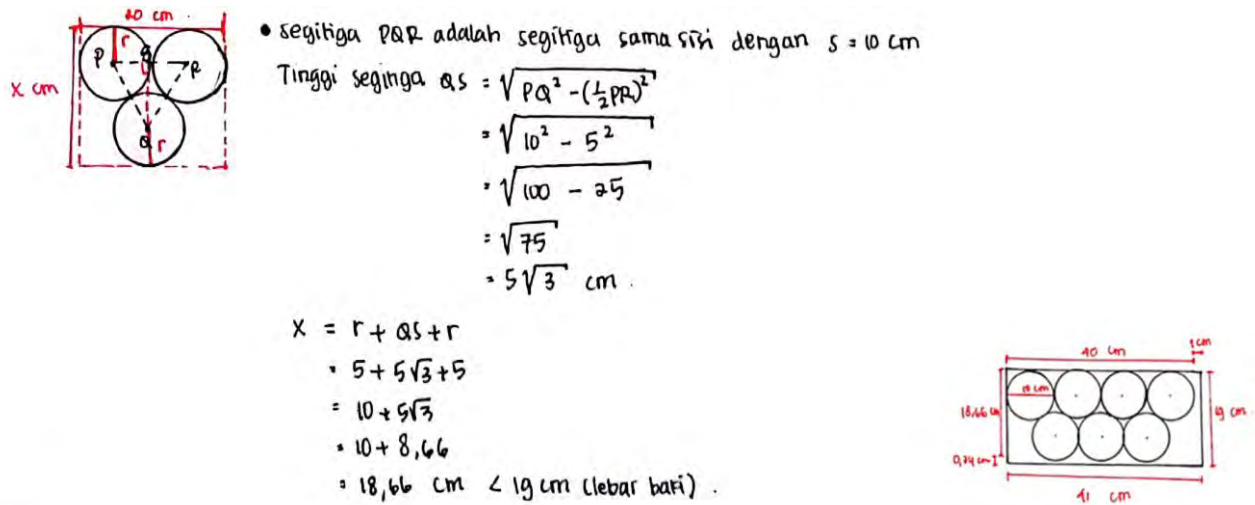 20 cm
x cm
P
r
S
R
Q
r
• segitiga PQR adalah segitiga sama sisi dengan s = 10 cm
Tinggi seginga QS = √PQ² - (½PR)²
= √10² - 5²
= √100 - 25
= √75
= 5√3 cm.
X = r + QS + r
= 5 + 5√3 + 5
= 10 + 5√3
= 10 + 8,66
= 18,66 cm < 19 cm (lebar baki).
40 cm
1 cm
10 cm
18,66 cm
19 cm
0,34 cm
41 cm